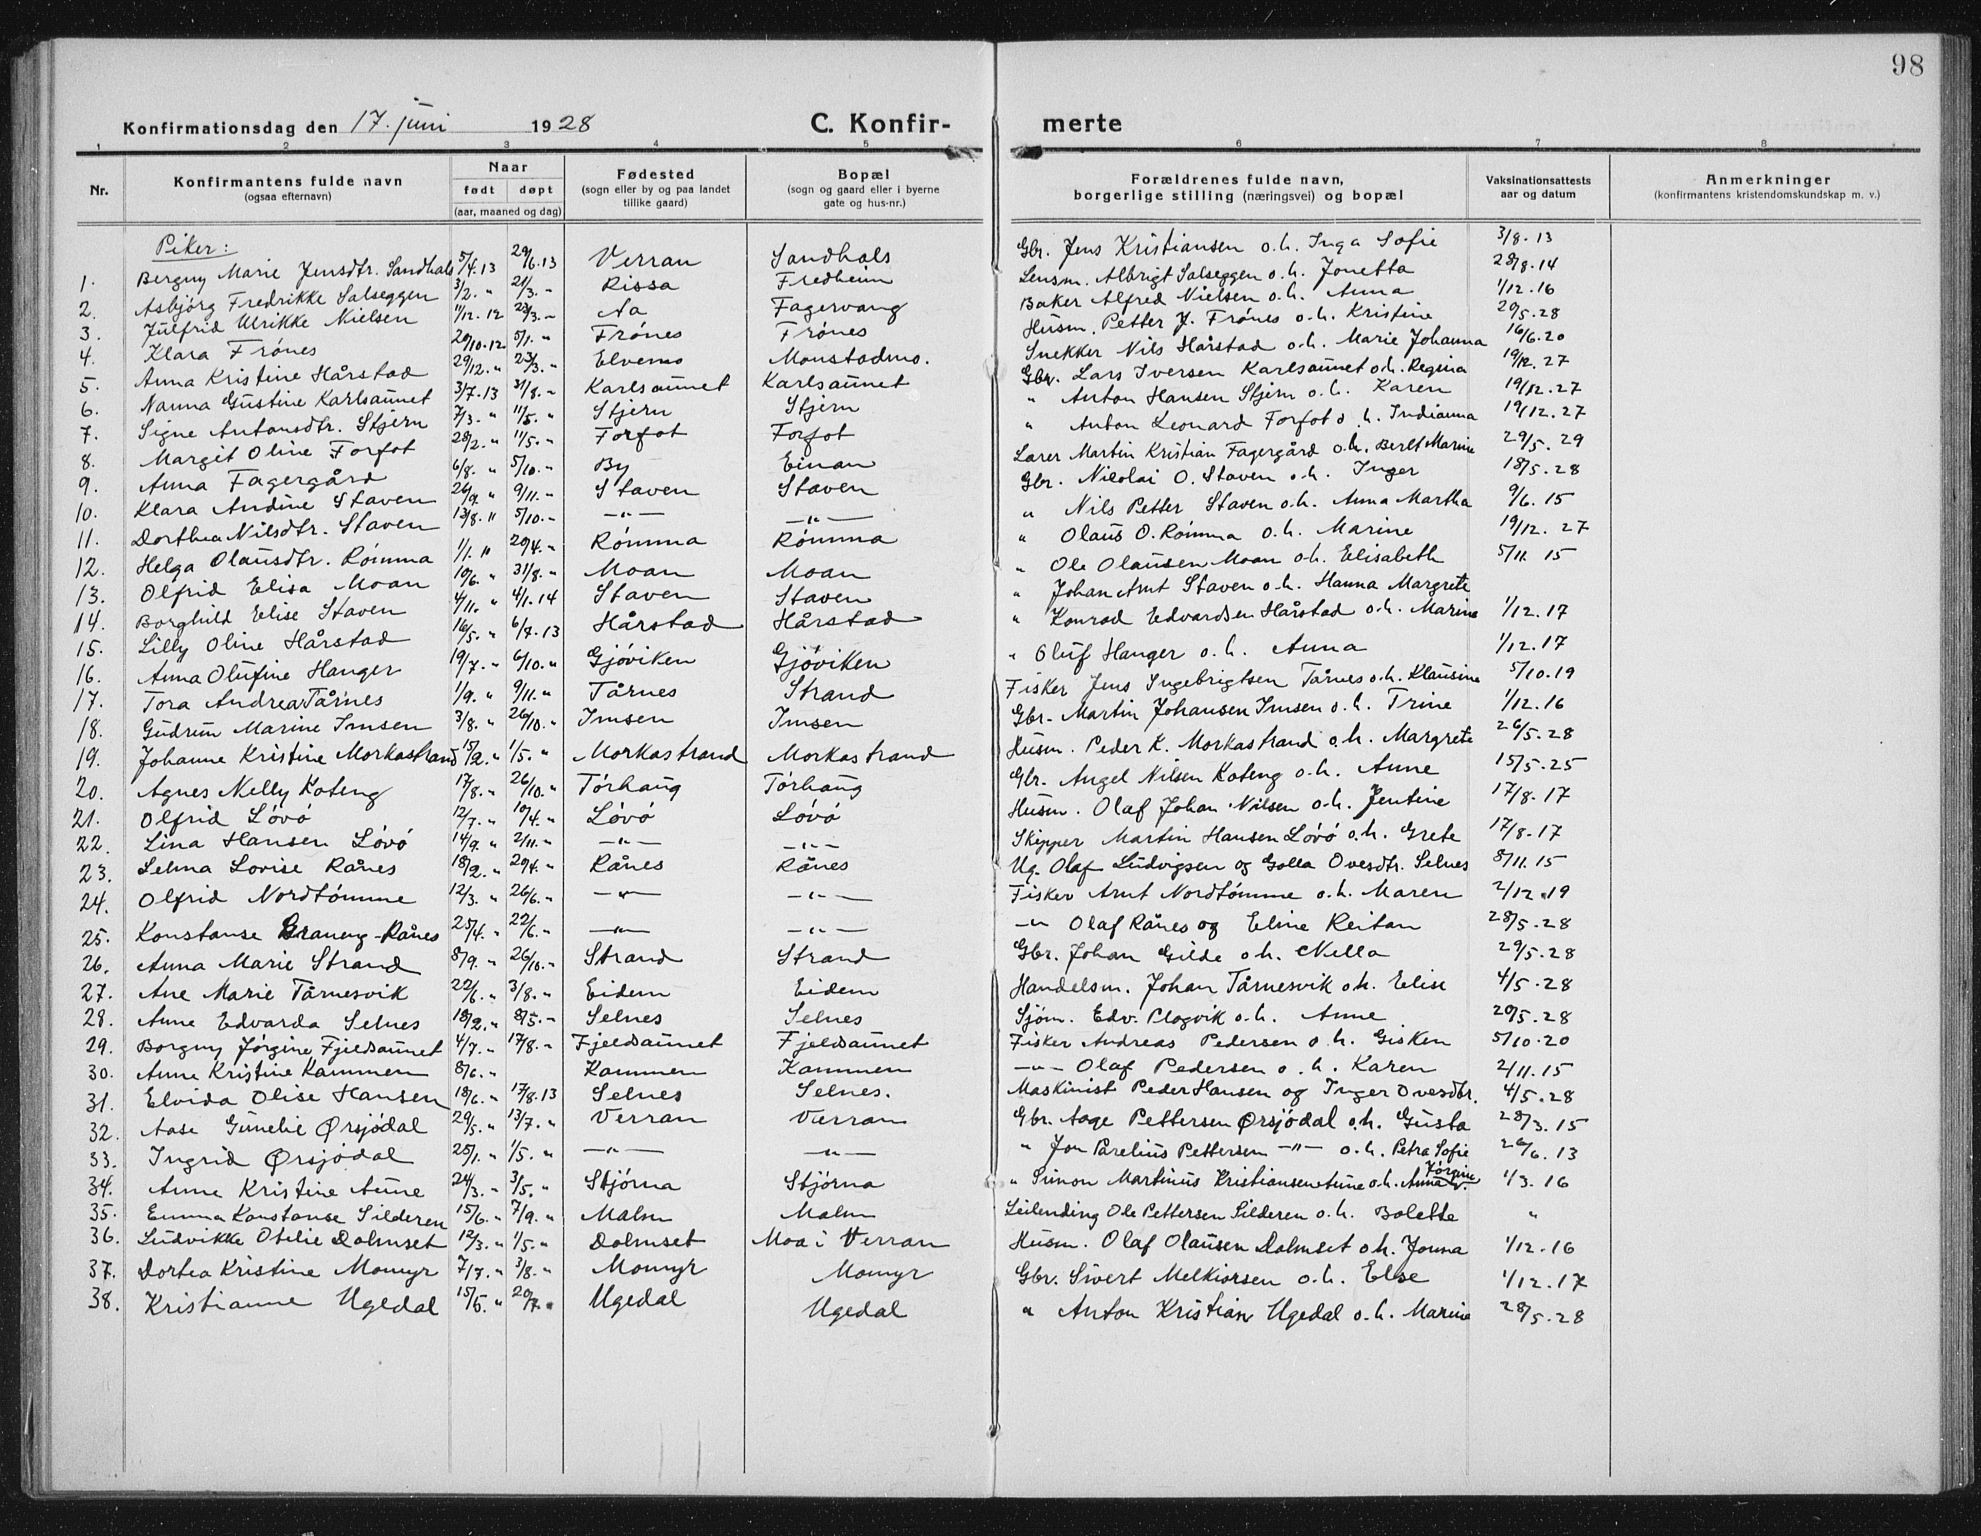 98
Konfirmationsdag den 17. juni 1928 C. Konfir- merte
1 2 3 4 5 6 7 8
Nr. Konfirmantens fulde navn (ogsaa efternavn) Naar født døpt (aar, maaned og dag) Fødested (sogn eller by og paa landet tillike gaard) Bopæl (sogn og gaard eller i byerne gate og hus-nr.) Forældrenes fulde navn, borgerlige stilling (næringsvei) og bopæl Vaksinationsattests aar og datum Anmerkninger (konfirmantens kristendomskundskap m. v.)
Piker:
1. Bergny Marie Jensdtr. Sandhals 5/4.13 29/6.13 Verran Sandhals Gbr. Jens Kristiansen o.h. Inga Sofie 3/8.13
2. Asbjörg Fredrikke Salseggen 3/2. " 21/3. " Rissa Fredheim Lensm. Albrigt Salseggen o.h. Jonetta 28/8.14
3. Julfrid Ulrikke Nielsen 1/12.12 23/3. " Aa Fagervang Baker Alfred Nielsen o.h. Anna 1/12.16
4. Klara Frönes 20/10.12 5/1. " Frönes Frönes Husm. Petter J. Frönes o.h. Kristine 29/5.28
5. Anna Kristine Hårstad 29/12. " 23/3. " Elvemo Monstadmo. Snekker Nils Hårstad o.h. Marie Johanna 16/6.20
6. Nanna Gustine Karlsaunet 3/7.13 31/8. " Karlsaunet Karlsaunet Gbr. Lars Iversen Karlsaunet o.h. Regina 19/12.27
7. Signe Antonsdtr. Stjern 7/3. " 11/5. " Stjern Stjern " Anton Hansen Stjern o.h. Karen 19/12.27
8. Margit Oline Forfot 28/2. " 11/5. " Forfot Forfot " Anton Leonard Forfot o.h. Indianna 19/12.27
9. Anna Fagergård 6/8. " 5/10. " By Einan Lærer Martin Kristian Fagergård o.h. Berit Marine 29/5.29
10. Klara Andine Staven 26/9. " 9/11. " Staven Staven Gbr. Nikolai O. Staven o.h. Inger 18/5.28
11. Dorthea Nilsdtr. Staven 13/8. " 5/10. " —"— —"— " Nils Petter Staven o.h. Anna Martha 9/6.15
12. Helga Olausdtr. Römma 1/1. " 20/4. " Römma Römma " Olaus O. Römma o.h. Marine 19/12.27
13. Olfrid Elisa Moan 10/6. " 31/8. " Moan Moan " Ole Olausen Moan o.h. Elisabeth 5/11 15
14. Borghild Elise Staven 4/11. " 4/1.14 Staven Staven " Johan Arnt Staven o.h. Hanna Margrete
15. Lilly Oline Hårstad 16/5. " 6/7.13 Hårstad Hårstad " Konrad Edvardsen Hårstad o.h. Marine 1/12.17
16. Anna Olufine Hanger 19/7. " 6/10. " Gjöviken Gjöviken " Oluf Hanger o.h. Anna 1/12.17
17. Tora Andrea Tårnes 1/9. " 9/11. " Tårnes Strand Fisker Jens Ingebrigtsen Tårnes o.h. Klausine 5/10.19
18. Gudrun Marine Imsen 3/8. " 26/10. " Imsen Imsen Gbr. Martin Johansen Imsen o.h. Trine 1/12.16
19. Johanne Kristine Morkastrand 15/2. " 1/5. " Morkastrand Morkastrand Husm. Peder K. Morkastrand o.h. Margrete 26/5.28
20. Agnes Nelly Koteng 17/8. " 26/10. " Törhaug Törhaug Gbr. Angel Nilsen Koteng o.h. Anne 15/5.25
21. Olfrid Lövö 12/7. " 10/4. " Lövö Lövö Husm. Olaf Johan Nilsen o.h. Jentine 17/8.17
22. Lina Hansen Lövö 14/9. " 2/11. " —"— —"— Skipper Martin Hansen Lövö o.h. Grete 17/8.17
23. Selma Lovise Rånes 18/2. " 20/4. " Rånes Rånes Ug. Olaf Ludvigsen og Golla Ovesdtr. Selnes 8/11.15
24. Olfrid Nordtömme 12/3. " 26/6. " —"— —"— Fisker Arnt Nordtömme o.h. Maren 2/12.19
25. Konstanse Graneng-Rånes 25/4. " 22/6. " —"— —"— —"— Olaf Rånes og Eline Reitan 28/5.28
26. Anna Marie Strand 8/9. " 26/10. " Strand Strand Gbr. Johan Gilde o.h. Nella 29/5.28
27. Ane Marie Tårnesvik 22/6. " 3/8. " Eidem Eidem Handelsm. Johan Tårnesvik o.h. Elise 4/5.28
28. Anne Edvarda Selnes 18/2. " 8/5. " Selnes Selnes Sjöm. Edv. Plogvik o.h. Anne 20/5.28
29. Borgny Jörgine Fjeldsaunet 4/7. " 17/8. " Fjeldsaunet Fjeldsaunet Fisker Andreas Pedersen o.h. Gisken 5/10.20
30. Anne Kristine Kammen 8/6. " Kammen Kammen —"— Olaf Pedersen o.h. Karen 2/11.15
31. Elvida Olise Hansen 18/6. " 17/8.13 Selnes Selnes. Maskinist Peder Hansen og Inger Ovesdtr. 4/5.28
32. Aase Gunelie Ørsjödal 29/5. " 13/7. " Verran Verran Gbr. Aage Pettersen Ørsjödal o.h. Gusta 28/3.15
33. Ingrid Ørsjödal 25/1. " 1/5. " —"— —"— " Jon Parelius Pettersen —"— o.h. Petra Sofie 26/6.13
34. Anne Kristine Aune 24/3. " 3/5. " Stjörna Stjörna " Simon Martinus Kristiansen Aune o.h. Anna Jörgine 1/3.16
35. Emma Konstanse Silderen 15/6. " 7/9. " Malm Malm Leilending Ole Pettersen Silderen o.h. Bolette "
36. Ludvikke Otelie Dolmset 12/3. " 1/5. " Dolmset Moa i Verran Husm. Olaf Olausen Dolmset o.h. Jonna 1/12.16
37. Dortea Kristine Momyr 7/7. " 3/8. " Momyr Momyr Gbr. Sivert Melkiorsen o.h. Else 1/12.17
38. Kristianne Ugedal 15/5. " 20/7. " Ugedal Ugedal " Anton Kristian Ugedal o.h. Marine 28/5.28